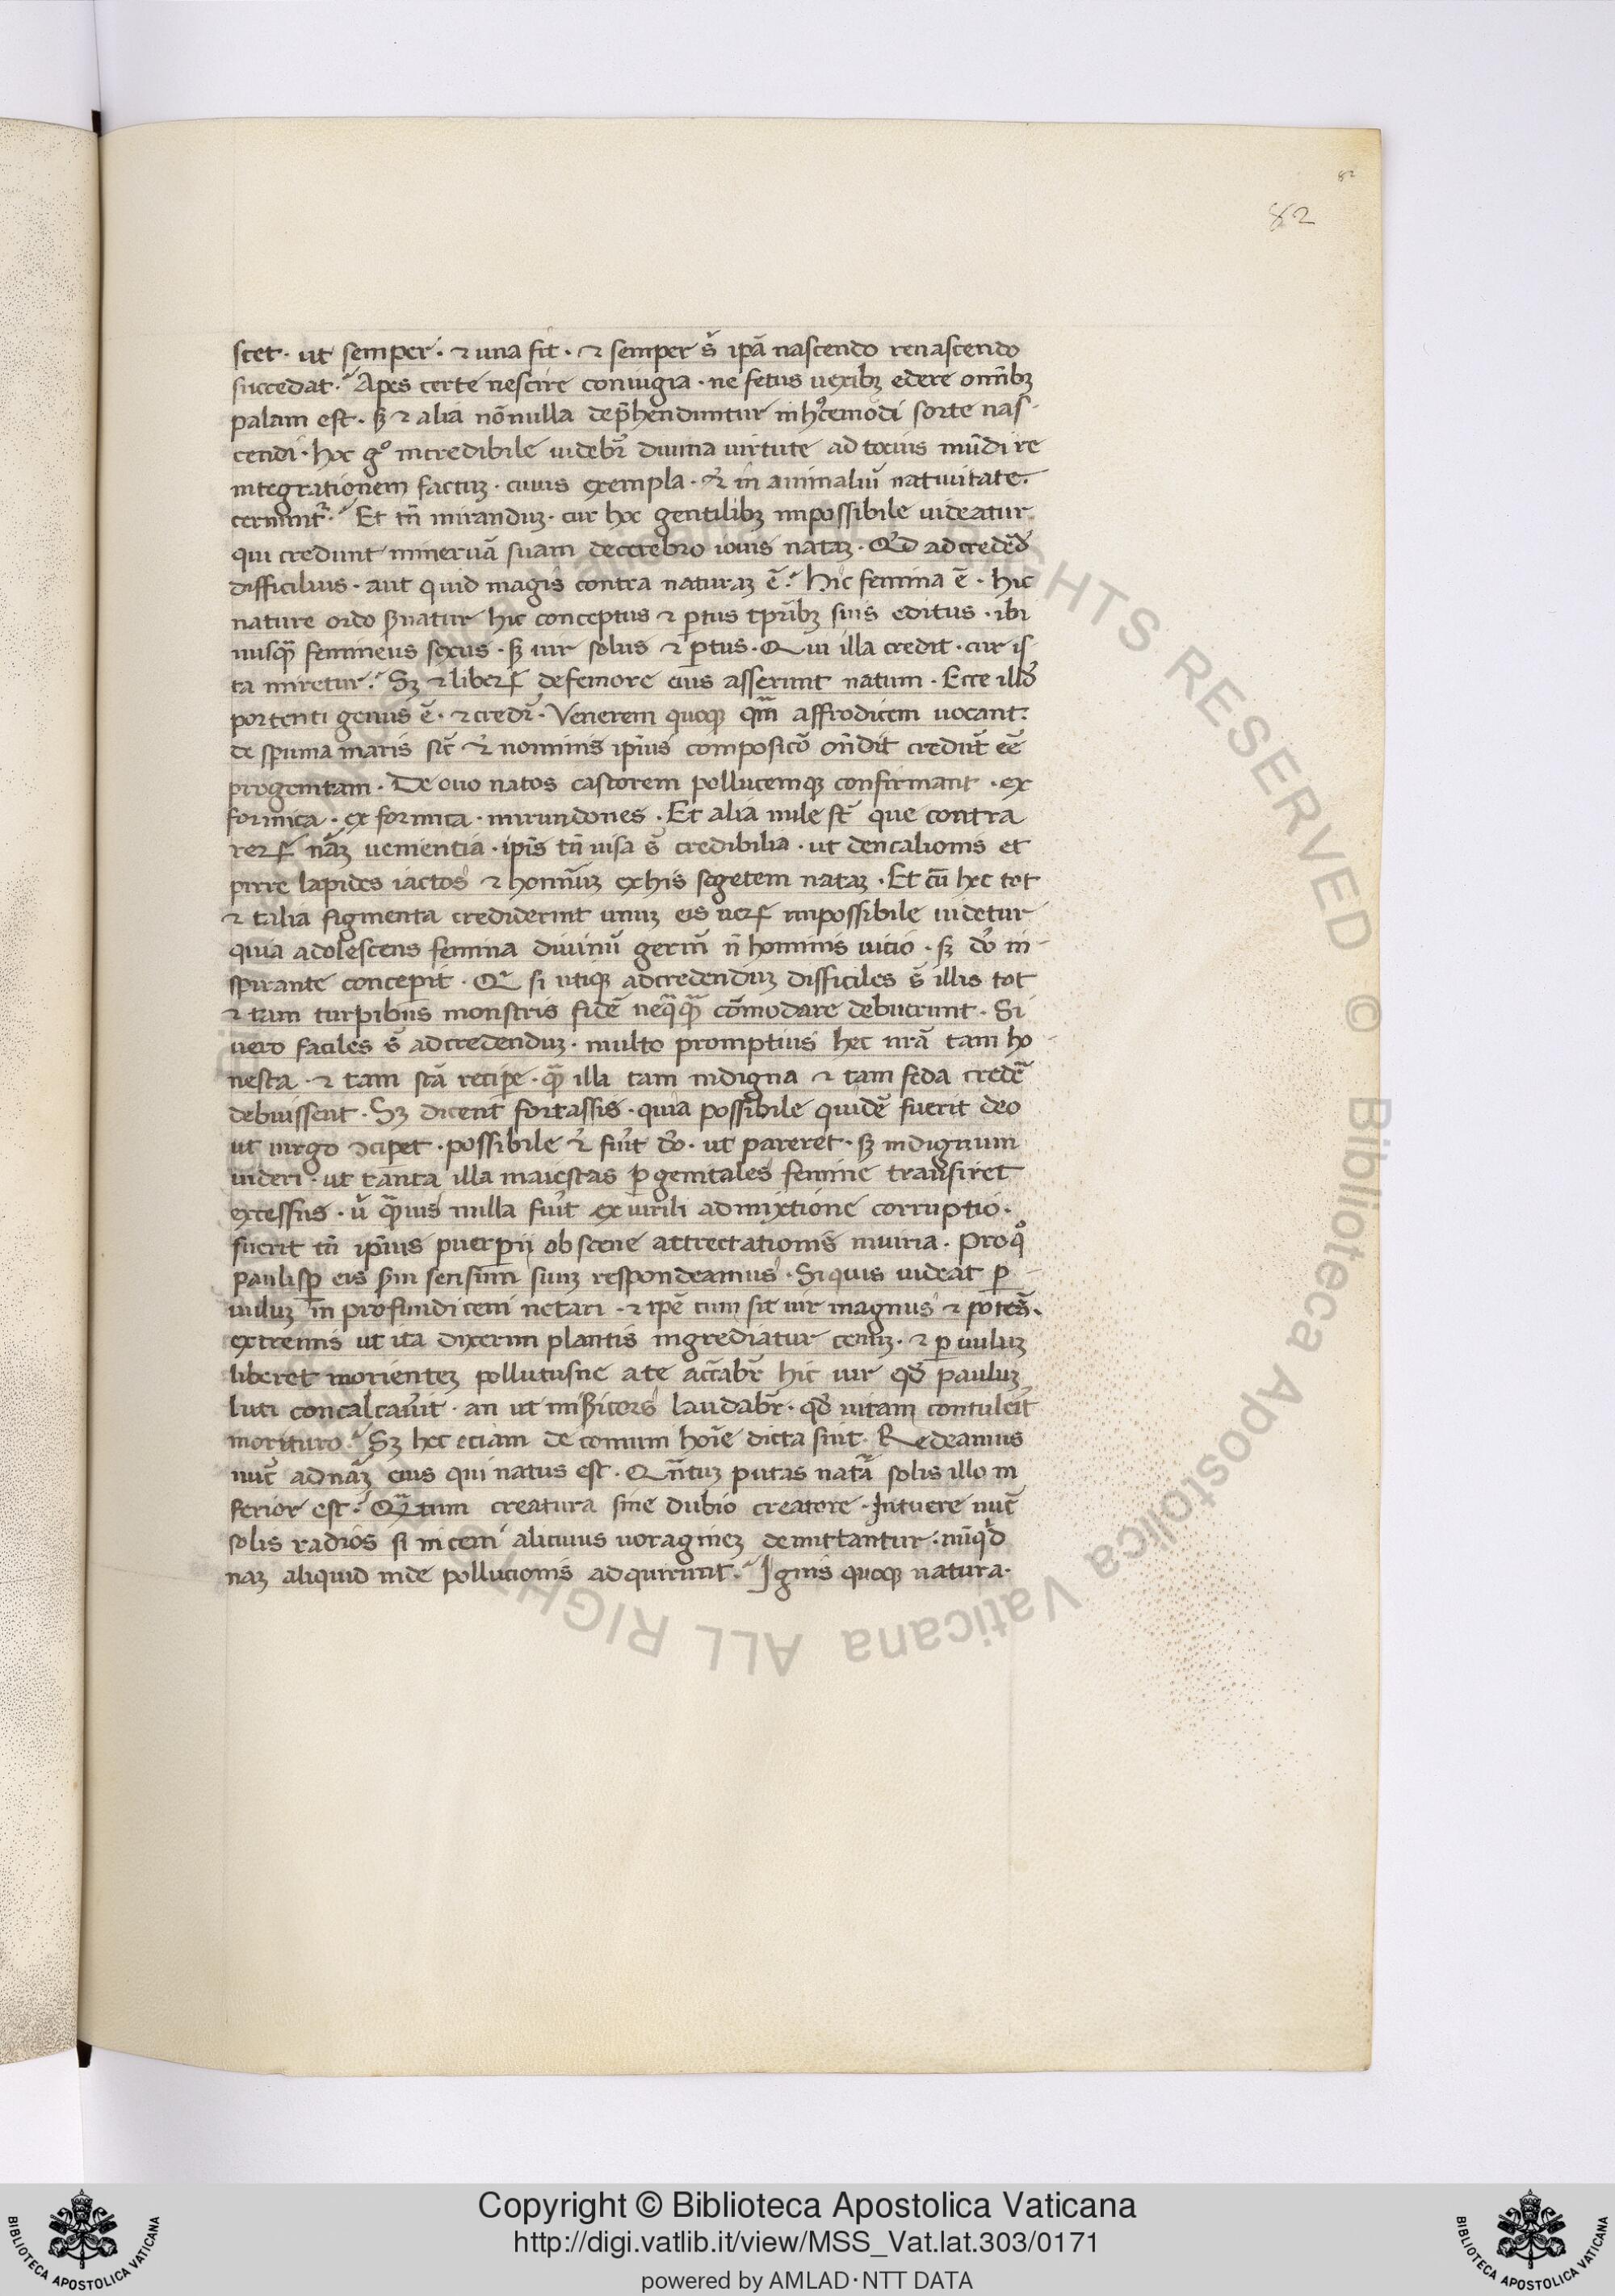 82
82
scet · ut semper · ⁊ una sit · ⁊ semper s̃ ip̃a nascendo renascendo
succedat · Apes certe nescire coniugia · ne fetus uexibꝫ edere om̃ibꝫ
palam est · sꝫ ⁊ alia nõnulla dep̃henduntur in hꝰcemodi sorte nas-
cendi · hoc gͦ incredibile uidebr̃ diuina uirtute ad tocius mũdi re
integrationem factuꝫ · cuius exempla · ⁊̃ in animaliũ natiuitate ·
cernunt̃ · Et tñ miranduꝫ · cur hoc gentilibꝫ impossibile uideatur
qui credunt mineruã suam de cerebro iouis nataꝫ · Qͥd ad credẽd̃
difficilius · aut quid magis contra naturaꝫ ẽ · hic femina ẽ · hic
nature ordo s̃uatur hic conceptus ⁊ ꝑtus tp̃ribꝫ suis editus · ibi
nusqᷓ femineus sexus · sꝫ uir solus ⁊ ꝑtus · Qui illa credit · cur is-
ta miretur · Sꝫ ⁊ liberꝝ de femore eius asserunt natum · Ecce illd̃
portenti genus ẽ · ⁊ credr̃ · Venerem quoqꝫ qm̃ affrodicem uocant ·
de spuma maris sic̃ ⁊̃ nominis ip̃ius composicõ oñdit credũt eẽ
progenitam · De ouo natos castorem pollucemqꝫ confirmant · ex
formica · ex formica · mirundones · Et alia mile st̃ que contra
rerꝝ nãꝫ uenientia · ip̃is tñ uisa s̃ credibilia · ut deucalionis et
pirre lapides iactos ⁊ hominũꝫ ex his segetem nataꝫ · Et cũ hec tot
⁊ talia figmenta crediderint unuꝫ eis uerꝝ impossibile uidetur
quia adolescens femina diuinũ germẽ ñ hominis uicio · sꝫ dõ in-
spirante concepit · Q̃ si utiqꝫ ad credenduꝫ difficiles s̃ illis tot
⁊ tam turpibus monstris fidẽ neqᷓqᷓ cõmodare debuerunt · Si
uero faciles s̃ ad credenduꝫ · multo promptius hec nr̃a tam ho-
nesta · ⁊ tam sc̃a recipe · qᷓ illa tam indigna ⁊ tam feda credẽ
debuissent · Sꝫ dicent fortassis · quia possibile quidẽ fuerit deo
ut uirgo ꝯcipet · possibile ⁊̃ fuit̃ dõ · ut pareret · sꝫ indignum
uideri · ut tanta illa maiestas ꝑ genitales femine transiret
excessus · ũ qᷓuis nulla fuit̃ ex uirili admixtione corruptio ·
fuerit tñ ip̃ius puerꝑii obscene attrectationis iniuria · Pro qͦ
paulisꝑ eis s̃m sensum suuꝫ respondeamus · Si quis uideat ꝑ-
uuluꝫ in profundi ceni necari · ⁊ ip̃e cum sit uir magnus ⁊ potẽs ·
extremis ut ita dixerim plantis ingrediatur cenuꝫ · ⁊ ꝑuuluꝫ
liberet morienteꝫ pollutusne a te acc̃abr̃ hic uir qd̃ pauluꝫ
luti concalcauit̃ · an ut mis̃icors laudabr̃ · qd̃ uitam contuleit̃
morituro · Sꝫ hec eciam de comum hoĩe dicta sint · Redeamus
nũc ad nãꝫ eius qui natus est · Qñtuꝫ putas nat̃a solis illo in
ferior est · Qᷓtum creatura sine dubio creatore · Intuere nũc
solis radios si in ceni alicuius uoragineꝫ demittantur · nũqͥd
naꝫ aliquid inde pollucionis adquirunt · Ignis quoqꝫ natura ·
Copyright © Biblioteca Apostolica Vaticana
http://digi.vatlib.it/view/MSS_Vat.lat.303/0171
powered by AMLAD·NTT DATA